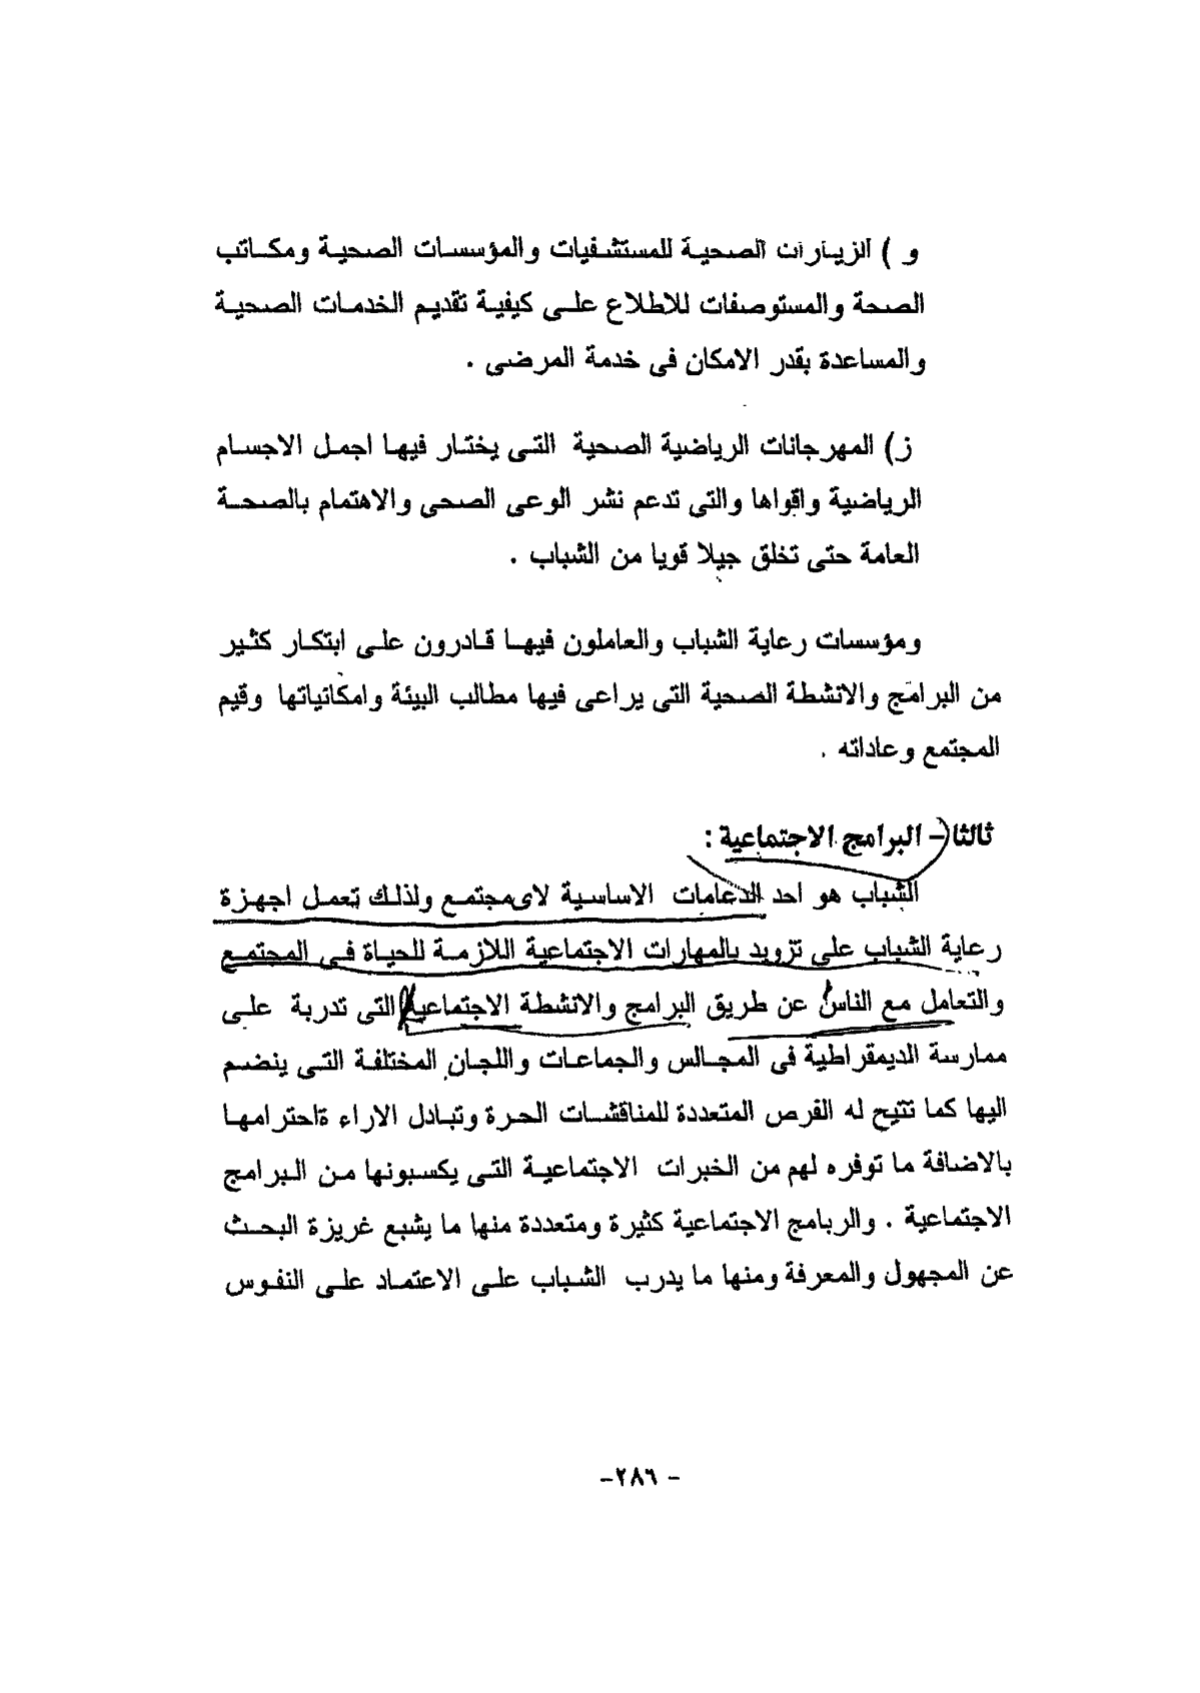 و ) الزيارات الصحية للمستشفيات والمؤسسات الصحية ومكاتب
الصحة والمستوصفات للاطلاع على كيفية تقديم الخدمات الصحية
والمساعدة بقدر الامكان فى خدمة المرضى .
ز) المهرجانات الرياضية الصحية التى يختار فيها اجمل الاجسام
الرياضية واقواها والتى تدعم نشر الوعى الصحى والاهتمام بالصحة
العامة حتى تخلق جيلا قويا من الشباب .
ومؤسسات رعاية الشباب والعاملون فيها قادرون على ابتكار كثير
من البرامج والانشطة الصحية التى يراعى فيها مطالب البيئة وامكانياتها وقيم
المجتمع وعاداته .
ثالثا - البرامج الاجتماعية :
الشباب هو احد الدعامات الاساسية لاى مجتمع ولذلك تعمل اجهزة
رعاية الشباب على تزويد بالمهارات الاجتماعية اللازمة للحياة فى المجتمع
والتعامل مع الناس عن طريق البرامج والانشطة الاجتماعية التى تدربة على
ممارسة الديمقراطية فى المجالس والجماعات واللجان المختلفة التى ينضم
اليها كما تتيح له الفرص المتعددة للمناقشات الحرة وتبادل الاراء ةاحترامها
بالاضافة ما توفره لهم من الخبرات الاجتماعية التى يكسبونها من البرامج
الاجتماعية . والربامج الاجتماعية كثيرة ومتعددة منها ما يشبع غريزة البحث
عن المجهول والمعرفة ومنها ما يدرب الشباب على الاعتماد على النفوس
- ٢٨٦-